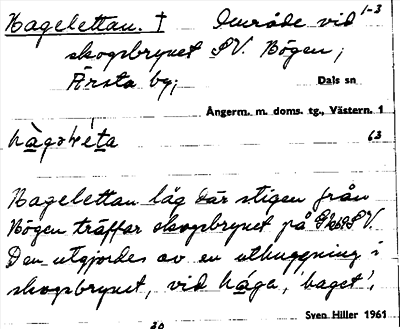 Hagelettan. † Område vid 1-3
skogsbrynet SV. Bögen,
Ärsta by; Dals sn
Ångerm. m. doms. tg., Västern. 1
63
Hagelettan låg där stigen från
Bögen träffar skogsbrynet på SV.
Den utgjordes av en uthuggning i
skogsbrynet, vid hága, 'haget',
Sven Hiller 1961
30